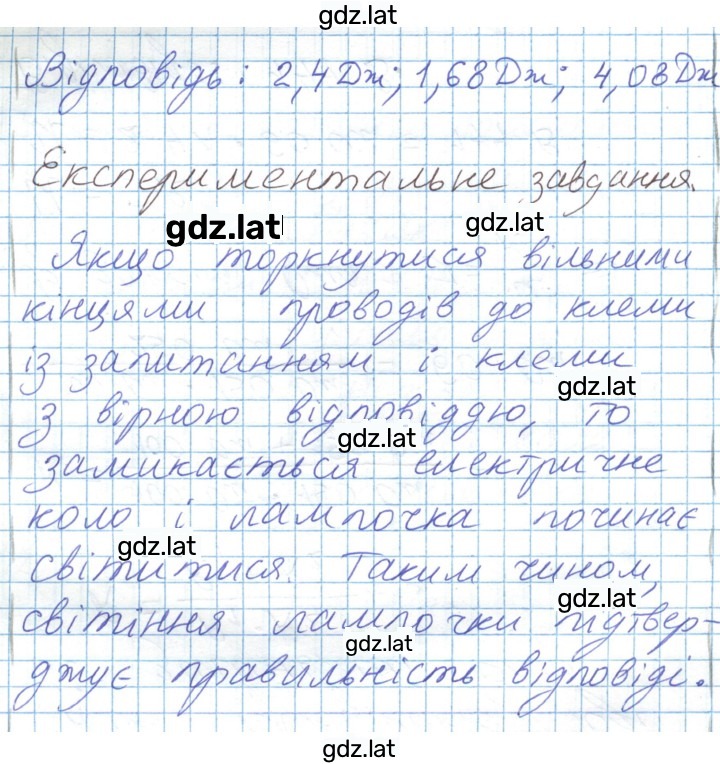 gdz.lat
Відповідь: 2,4 Дж; 1,68 Дж; 4,08 Дж
Експериментальне завдання.
gdz.lat
gdz.lat
Якщо торкнутися вільними
кінцями проводів до клеми
із запитанням і клеми
gdz.lat
з вірною відповіддю, то
gdz.lat
замикається електричне
коло і лампочка починає
gdz.lat
світитися. Таким чином,
gdz.lat
світіння лампочки підтвер-
gdz.lat
джує правильність відповіді.
gdz.lat